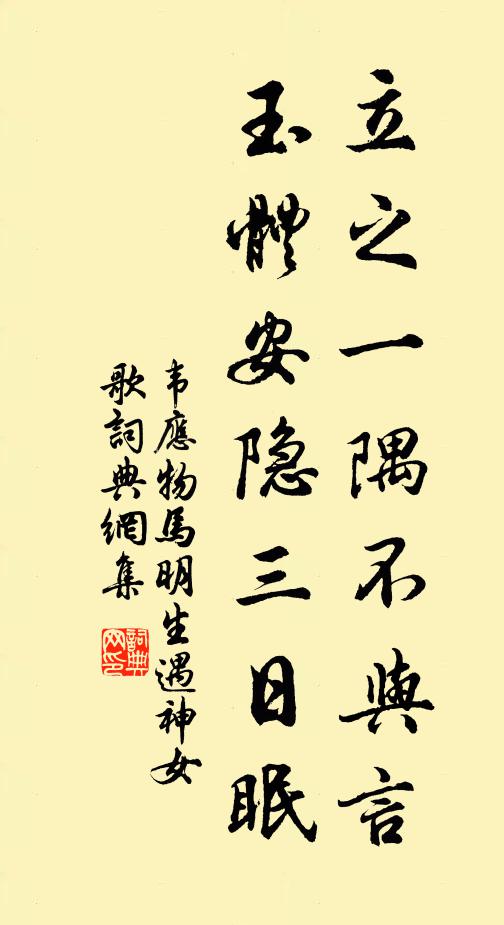 立之一隅不與言
玉體安隐三日眠
韦應物馬明生遇神女
歌詞典網集
詞典
网印